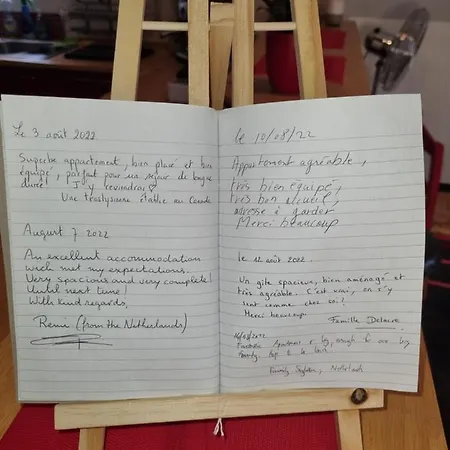 Le 3 août 2022
Superbe appartement, bien placé et bien
équipé, parfait pour un séjour de longue
durée! J'y reviendrai
Une
établie au Canada
August 7 2022
An excellent accommodation
wich met my expectations.
Very spacious and very complete!
Until next time!
With kind regards,
Remi (from the Netherlands)
le 10/08/22
Appartement agréable,
très bien équipé,
très bon accueil,
adresse à garder
Merci beaucoup
le 12 août 2022.
Un gîte spacieux, bien aménagé et
très agréable. C'est vrai, on s'y
sent comme chez soi!
Merci beaucoup
Famille
Apartment
enough for our
Family